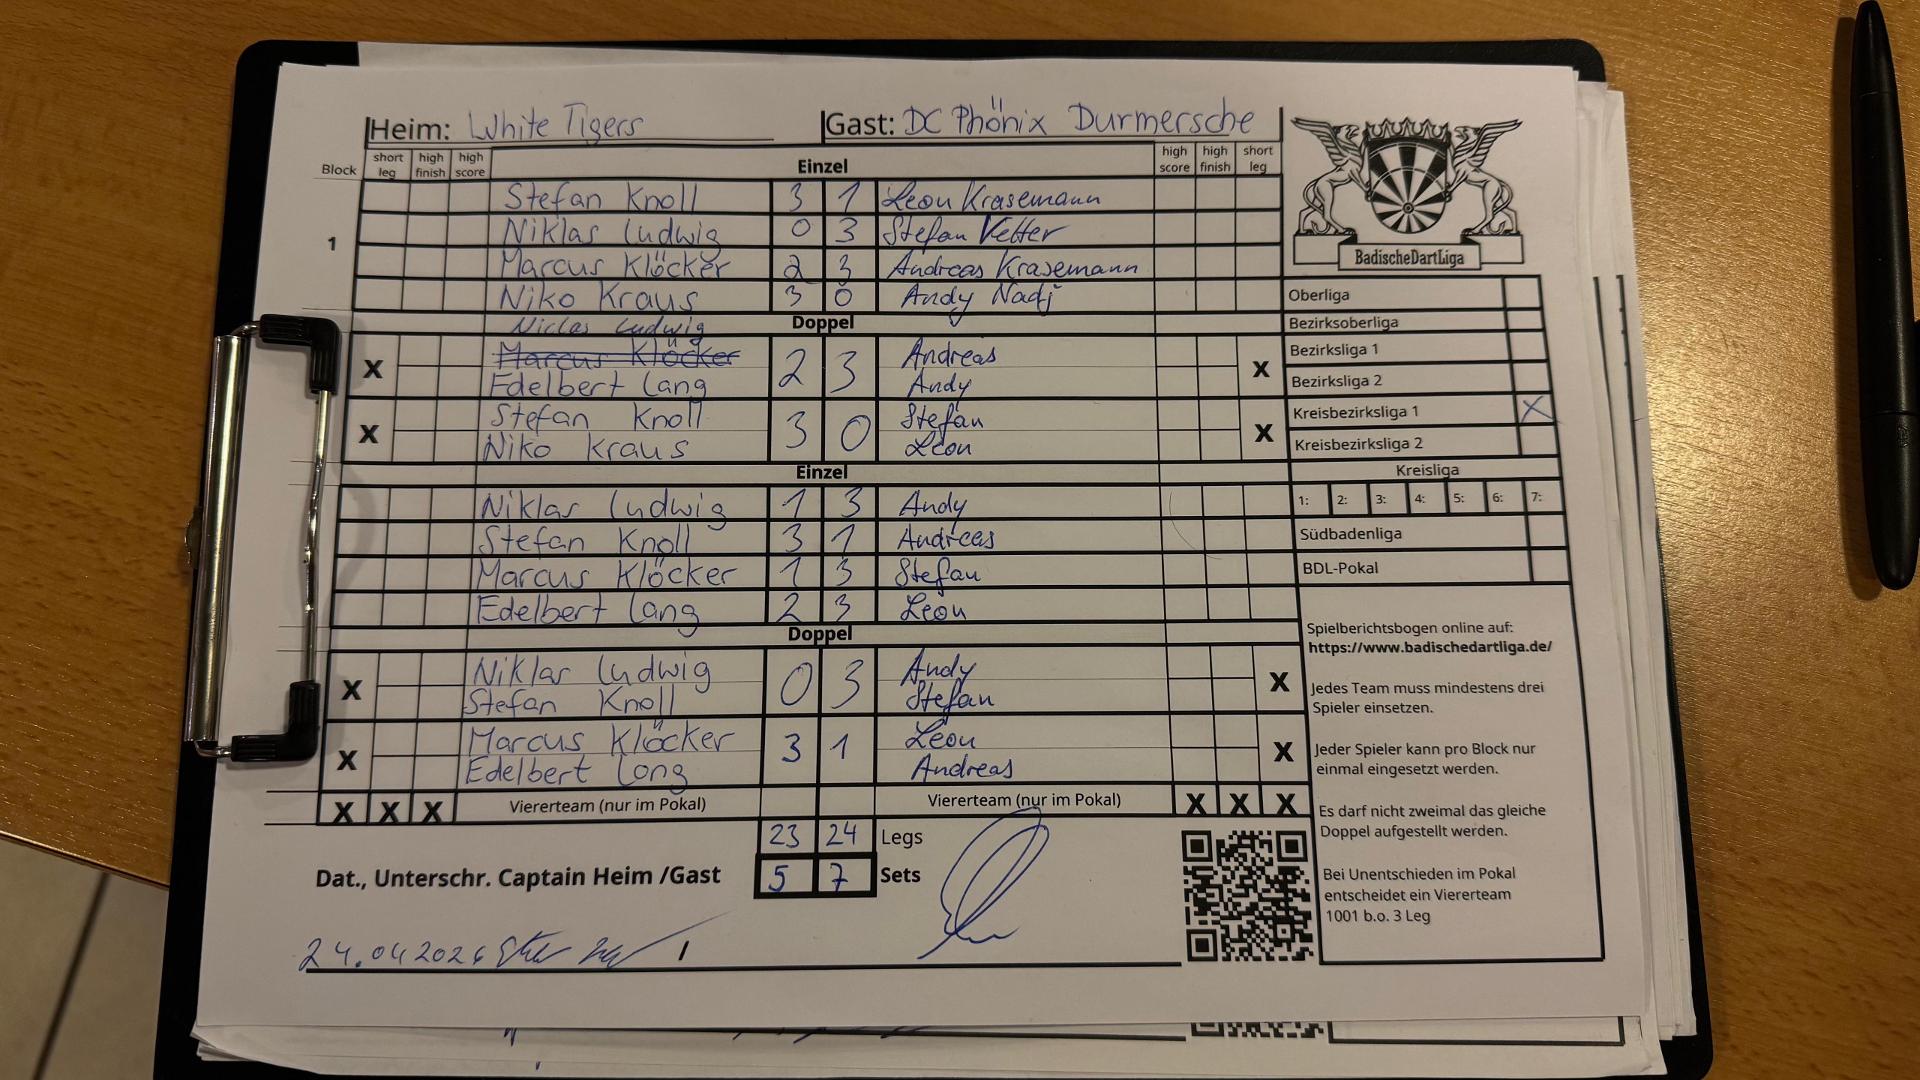 Heim: White Tigers Gast: DC Phönix Durmersche
Block short leg high finish high score Einzel high score high finish short leg
1
Stefan Knoll 3 1 Leon Krasemann
Niklas Ludwig 0 3 Stefan Vetter
Marcus Klöcker 2 3 Andreas Krasemann
Niko Kraus 3 0 Andy Nadj
Doppel
Niclas Ludwig
Marcus Klöcker
X Edelbert Lang 2 3 Andreas Andy X
X Stefan Knoll Niko Kraus 3 0 Stefan Leon X
Einzel
Niklas Ludwig 1 3 Andy
Stefan Knoll 3 1 Andreas
Marcus Klöcker 1 3 Stefan
Edelbert Lang 2 3 Leon
Doppel
X Niklas Ludwig Stefan Knoll 0 3 Andy Stefan X
X Marcus Klöcker Edelbert Lang 3 1 Leon Andreas X
X X X Viererteam (nur im Pokal) Viererteam (nur im Pokal) X X X
23 24 Legs
5 7 Sets
Dat., Unterschr. Captain Heim /Gast
24.04.2026 /
BadischeDartLiga
Oberliga
Bezirksoberliga
Bezirksliga 1
Bezirksliga 2
Kreisbezirksliga 1 X
Kreisbezirksliga 2
Kreisliga
1: 2: 3: 4: 5: 6: 7:
Südbadenliga
BDL-Pokal
Spielberichtsbogen online auf:
https://www.badischedartliga.de/
Jedes Team muss mindestens drei
Spieler einsetzen.
Jeder Spieler kann pro Block nur
einmal eingesetzt werden.
Es darf nicht zweimal das gleiche
Doppel aufgestellt werden.
Bei Unentschieden im Pokal
entscheidet ein Viererteam
1001 b.o. 3 Leg